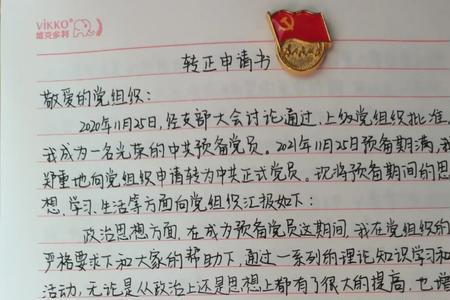 VIKKO
维克多利
转正申请书
敬爱的党组织:
2020年11月25日,经支部大会讨论通过,上级党组织批准,
我成为一名光荣的中共预备党员。2021年11月25日预备期满,我
郑重地向党组织申请转为中共正式党员。现将预备期间的思
想、学习、生活等方面向党组织汇报如下:
政治思想方面,在成为预备党员这期间,我在党组织的
严格要求下和大家的帮助下,通过一系列的理论知识学习和
活动,无论是从政治上还是思想上都有了很大的提高,也增